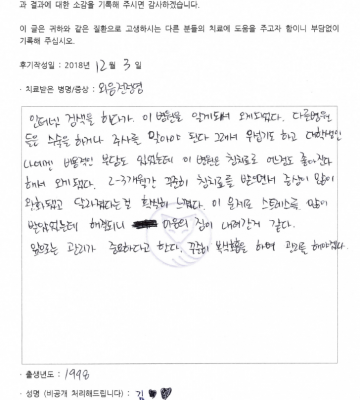 과 결과에 대한 소감을 기록해 주시면 감사하겠습니다.
이 글은 귀하와 같은 질환으로 고생하시는 다른 분들의 치료에 도움을 주고자 함이니 부담없이
기록해 주십시오.
후기작성일 : 2018년 12 월 3 일
· 치료받은 병명/증상 : 외음전정염
인터넷 검색을 하다가 이 병원을 알게되서 오게되었다. 다른병원
들은 수술을 하거나 주사를 맞아야 된다 그래서 무섭기도 하고 대학생인
나에겐 비용적인 부담도 있었는데 이 병원은 침치료로 해서
오게됐다. 2~3개월간 꾸준히 침치료를 받으면서 증상이 많이
완화됐고 달라졌다는걸 확실히 느꼈다. 이 문제로 스트레스를 많이
받았었는데 해결되니 마음의 짐이 내려간거 같다.
앞으로는 관리가 중요하다고 한다. 꾸준히 하며 관리를 해야겠다.
· 출생년도 : 1998
· 성명 (비공개 처리해드립니다) : 김 ♥♥